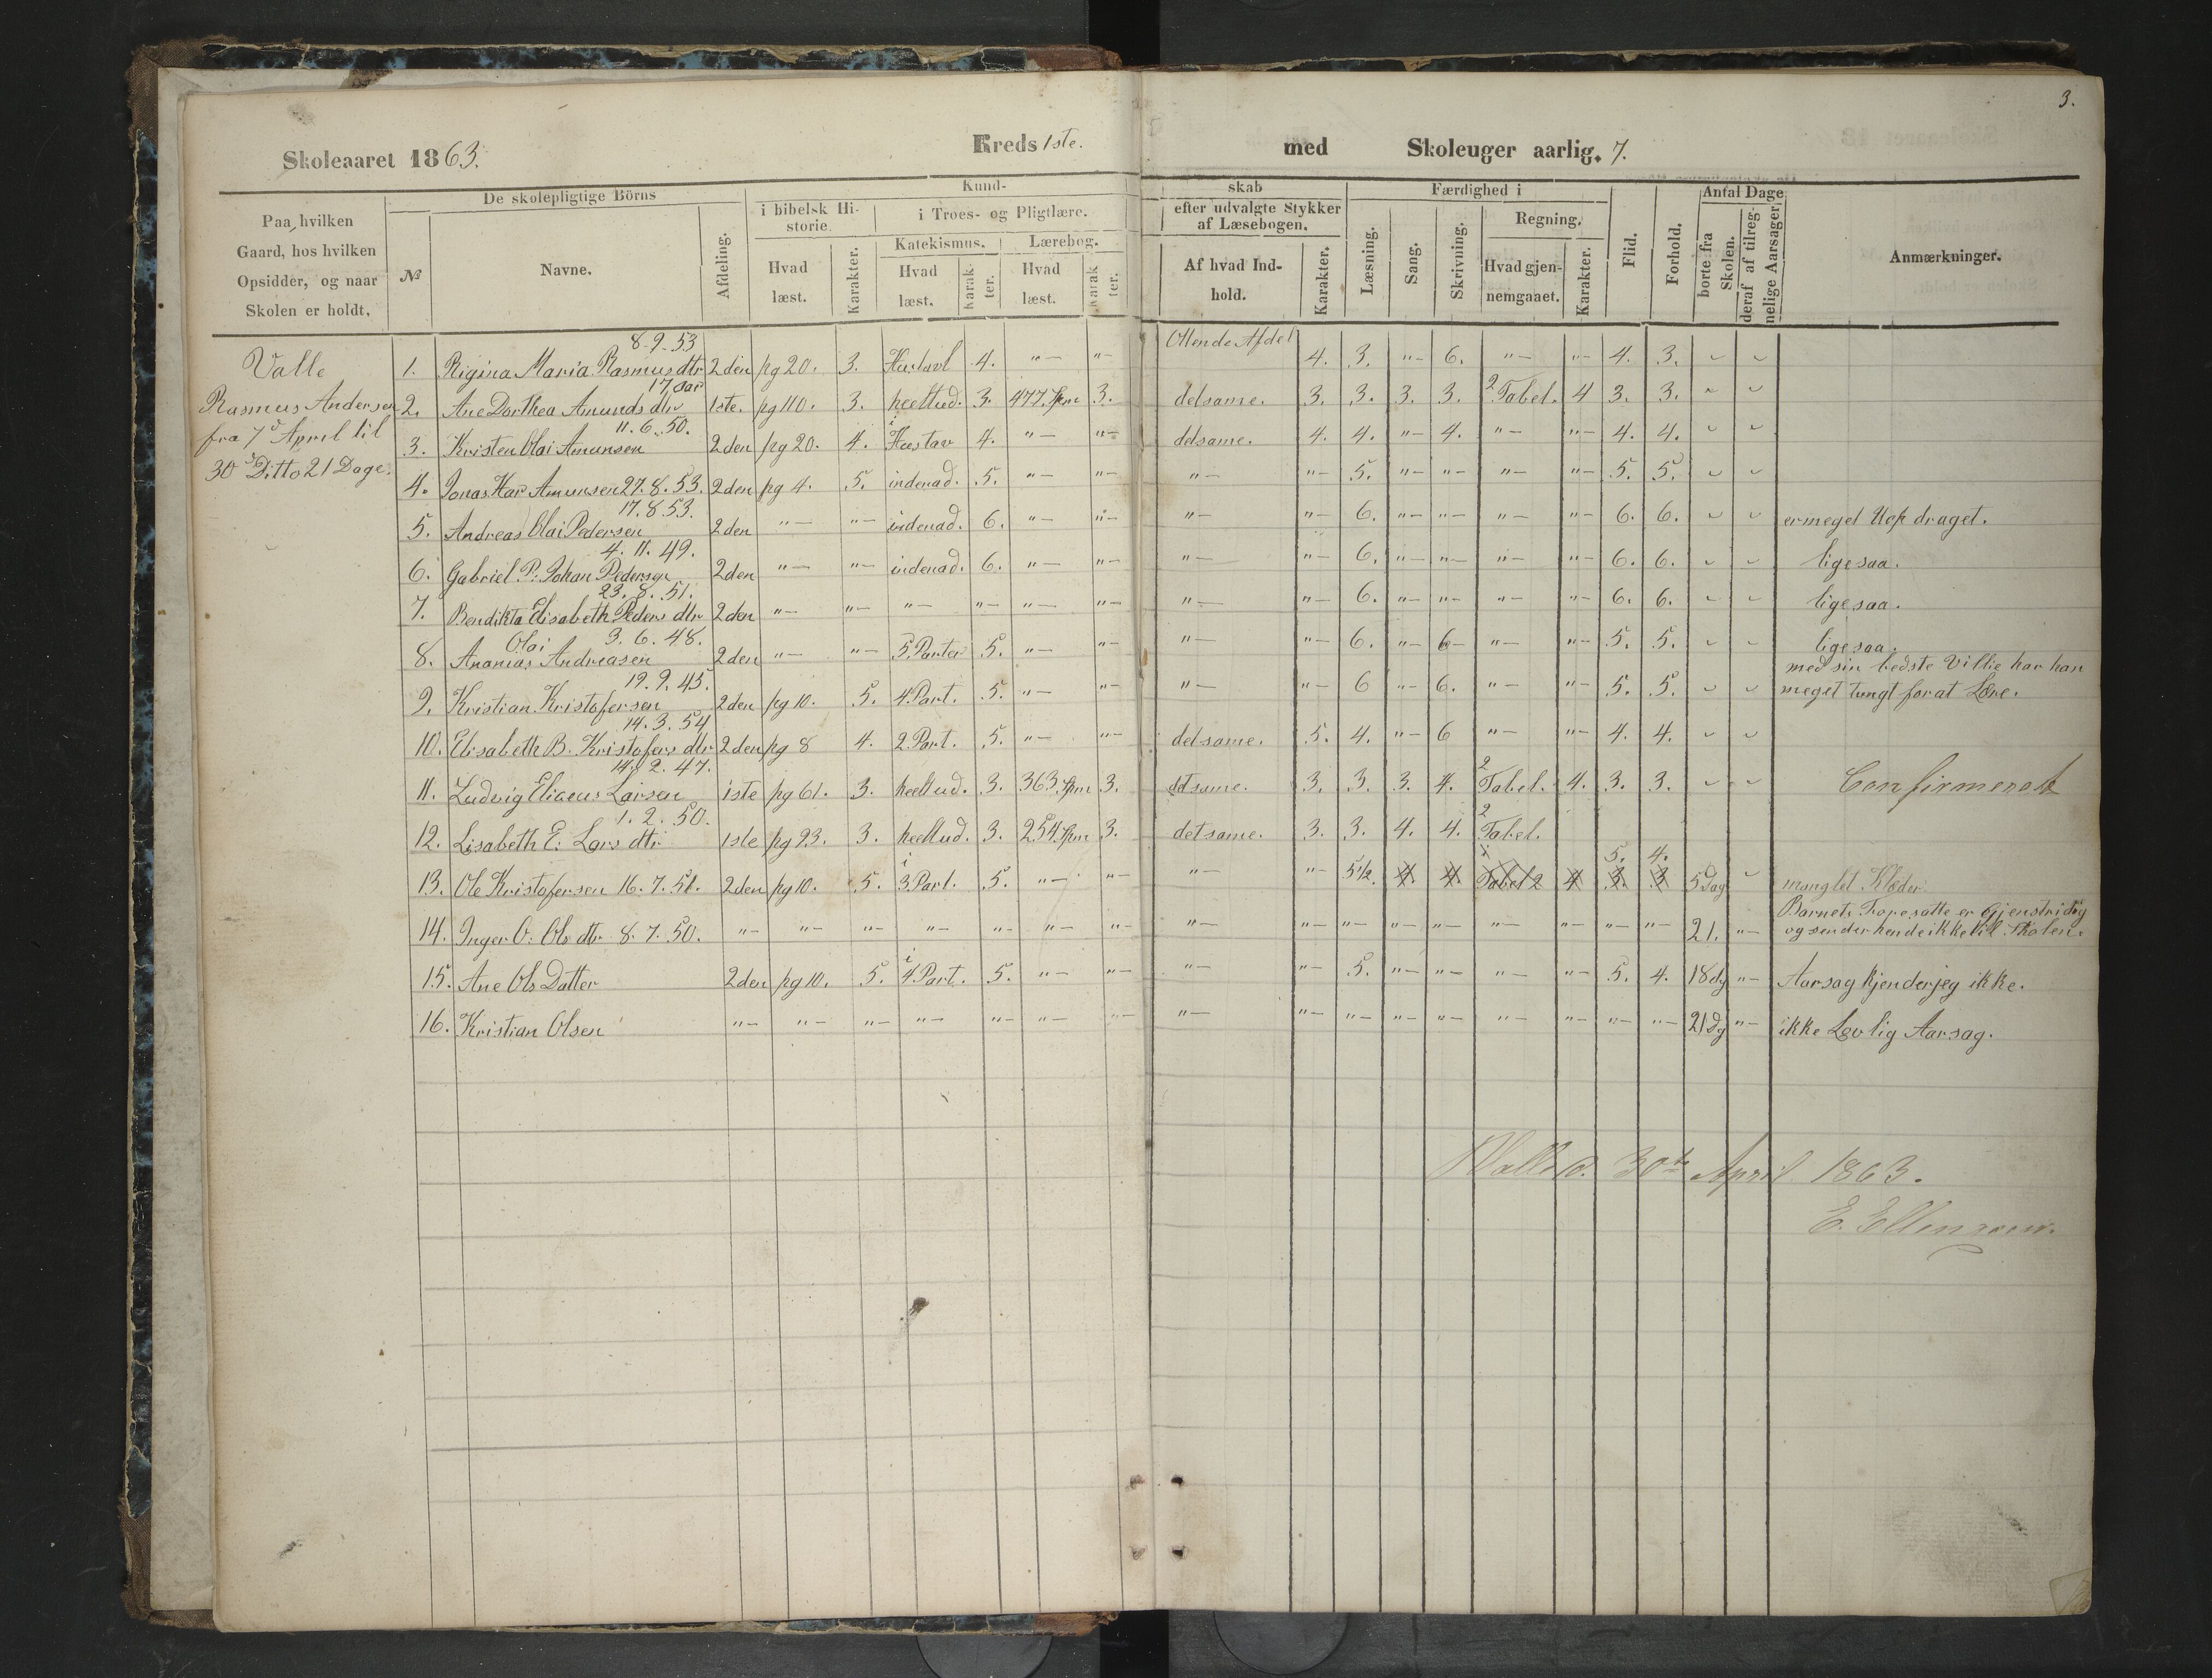 3.
Skoleaaret 1863. Kreds 1ste. med Skoleuger aarlig. 7.
Paa hvilken Gaard, hos hvilken Opsidder, og naar Skolen er holdt.
De skolepligtige Börns
№ Navne. Afdeling.
Kund- skab
i bibelsk Hi- storie. Hvad læst. Karakter.
i Troes- og Pligtlære.
Katekismus. Hvad læst. Karak- ter.
Lærebog. Hvad læst. Karak ter.
efter udvalgte Stykker af Læsebogen. Af hvad Ind- hold. Karakter.
Færdighed i
Læsning. Sang. Skrivning.
Regning. Hvad gjen- nemgaaet. Karakter.
Flid. Forhold.
Antal Dage
borte fra Skolen. deraf af tilreg- nelige Aarsager.
Anmærkninger.
Valle
Rasmus Andersen
fra 7d April til
30d Ditto 21 Dage.
8-9-53
1. Rigina Maria Rasmus dtr 2den pg 20. 3. 4. "— "— Afdel 4. 3. "— 6. "— "— 4. 3. ᴗ ᴗ
17 Aar
2. Ane Dorthea Amunds dtr 1ste. pg 110. 3. heeltud. 3. 477. Spm 3. detsame. 3. 3. 3. 3. 2 Tabel. 4 3. 3. ᴗ ᴗ
11. 6. 50.
3. Kristen Olai Amunsen 2den pg 20. 4. 4. "— "— detsame. 4. 4. "— 4. "— "— 4. 4. ᴗ ᴗ
4. Jonas Har Amunsen 27. 8. 53. 2den pg 4. 5. indenad. 5. "— "— "— "— 5. "— "— "— "— 5. 5. ᴗ ᴗ
17. 8. 53.
5. Andreas Olai Pedersen 2den "— "— indenad. 6. "— "— "— "— 6. "— "— "— "— 6. 6. ᴗ ᴗ er meget Uop draget.
4. 11. 49.
6. Gabriel P: Johan Pedersen 2den "— "— indenad. 6. "— "— "— "— 6. "— "— "— "— 6. 6. ᴗ ᴗ ligesaa.
23. 8. 51.
7. Bendikta Elisabeth Peders dtr 2den "— "— "— "— "— "— "— "— 6. "— "— "— "— 6. 6. ᴗ ᴗ ligesaa.
Olai 3. 6. 48.
8. Ananias Andreasen 2den "— "— 5. Parter 5. "— "— "— "— 6. "— 6— "— "— 5. 5. ᴗ ᴗ ligesaa.
19. 9. 45. med sin bedste Villie har han
9. Kristian Kristofersen 2den pg 10. 5. 4. Part. 5. "— "— "— "— 6 "— 6. "— "— 5. 5. ᴗ ᴗ meget tungt for at Lære.
14. 3. 54
10. Elisabeth B. Kristofers dtr 2den pg 8 4. 2. Part. 5. "— "— detsame. 5. 4. "— 6 "— "— 4. 4. ᴗ ᴗ
14. 2. 47.
11. Ludvig Eliaeus Larsen 1ste pg 61. 3. heeltud. 3. 363. Spm 3. detsame. 3. 3. 3. 4. 2 Tabel. 4. 3. 3. ᴗ ᴗ Confirmerat
1. 2. 50.
12. Lisabeth E: Lars dtr 1ste pg 93. 3. heeltud. 3. 254. Spm 3. detsame. 3. 3. 4. 4. 2 Tabel.
5. 4.
13. Ole Kristofersen 16. 7. 51. 2den pg 10. 5. i 3. Part. 5. "— "— "— "— 5½. 4. 4. Tabel 2 4 3. 3 5 Dag ᴗ manglet Klæder.
Barnets Foresatte er Gjenstridig
14. Inger O: Ols dtr 8. 7. 50. "— "— "— "— "— "— "— "— "— "— "— "— "— "— "— "— 21. "— og sender hende ikke til Skolen.
15. Ane Ols Datter 2den pg 10. 5. i 4. Part. 5. "— "— "— "— 5. "— "— "— "— 5. 4. 18 dg "— Aarsag kjender jeg ikke.
16. Kristian Olsen "— "— "— "— "— "— "— "— "— "— "— "— "— "— "— "— 21 Dg "— ikke Lovlig Aarsag.
Valle d. 30te April 1863.
E. Ellingsen.